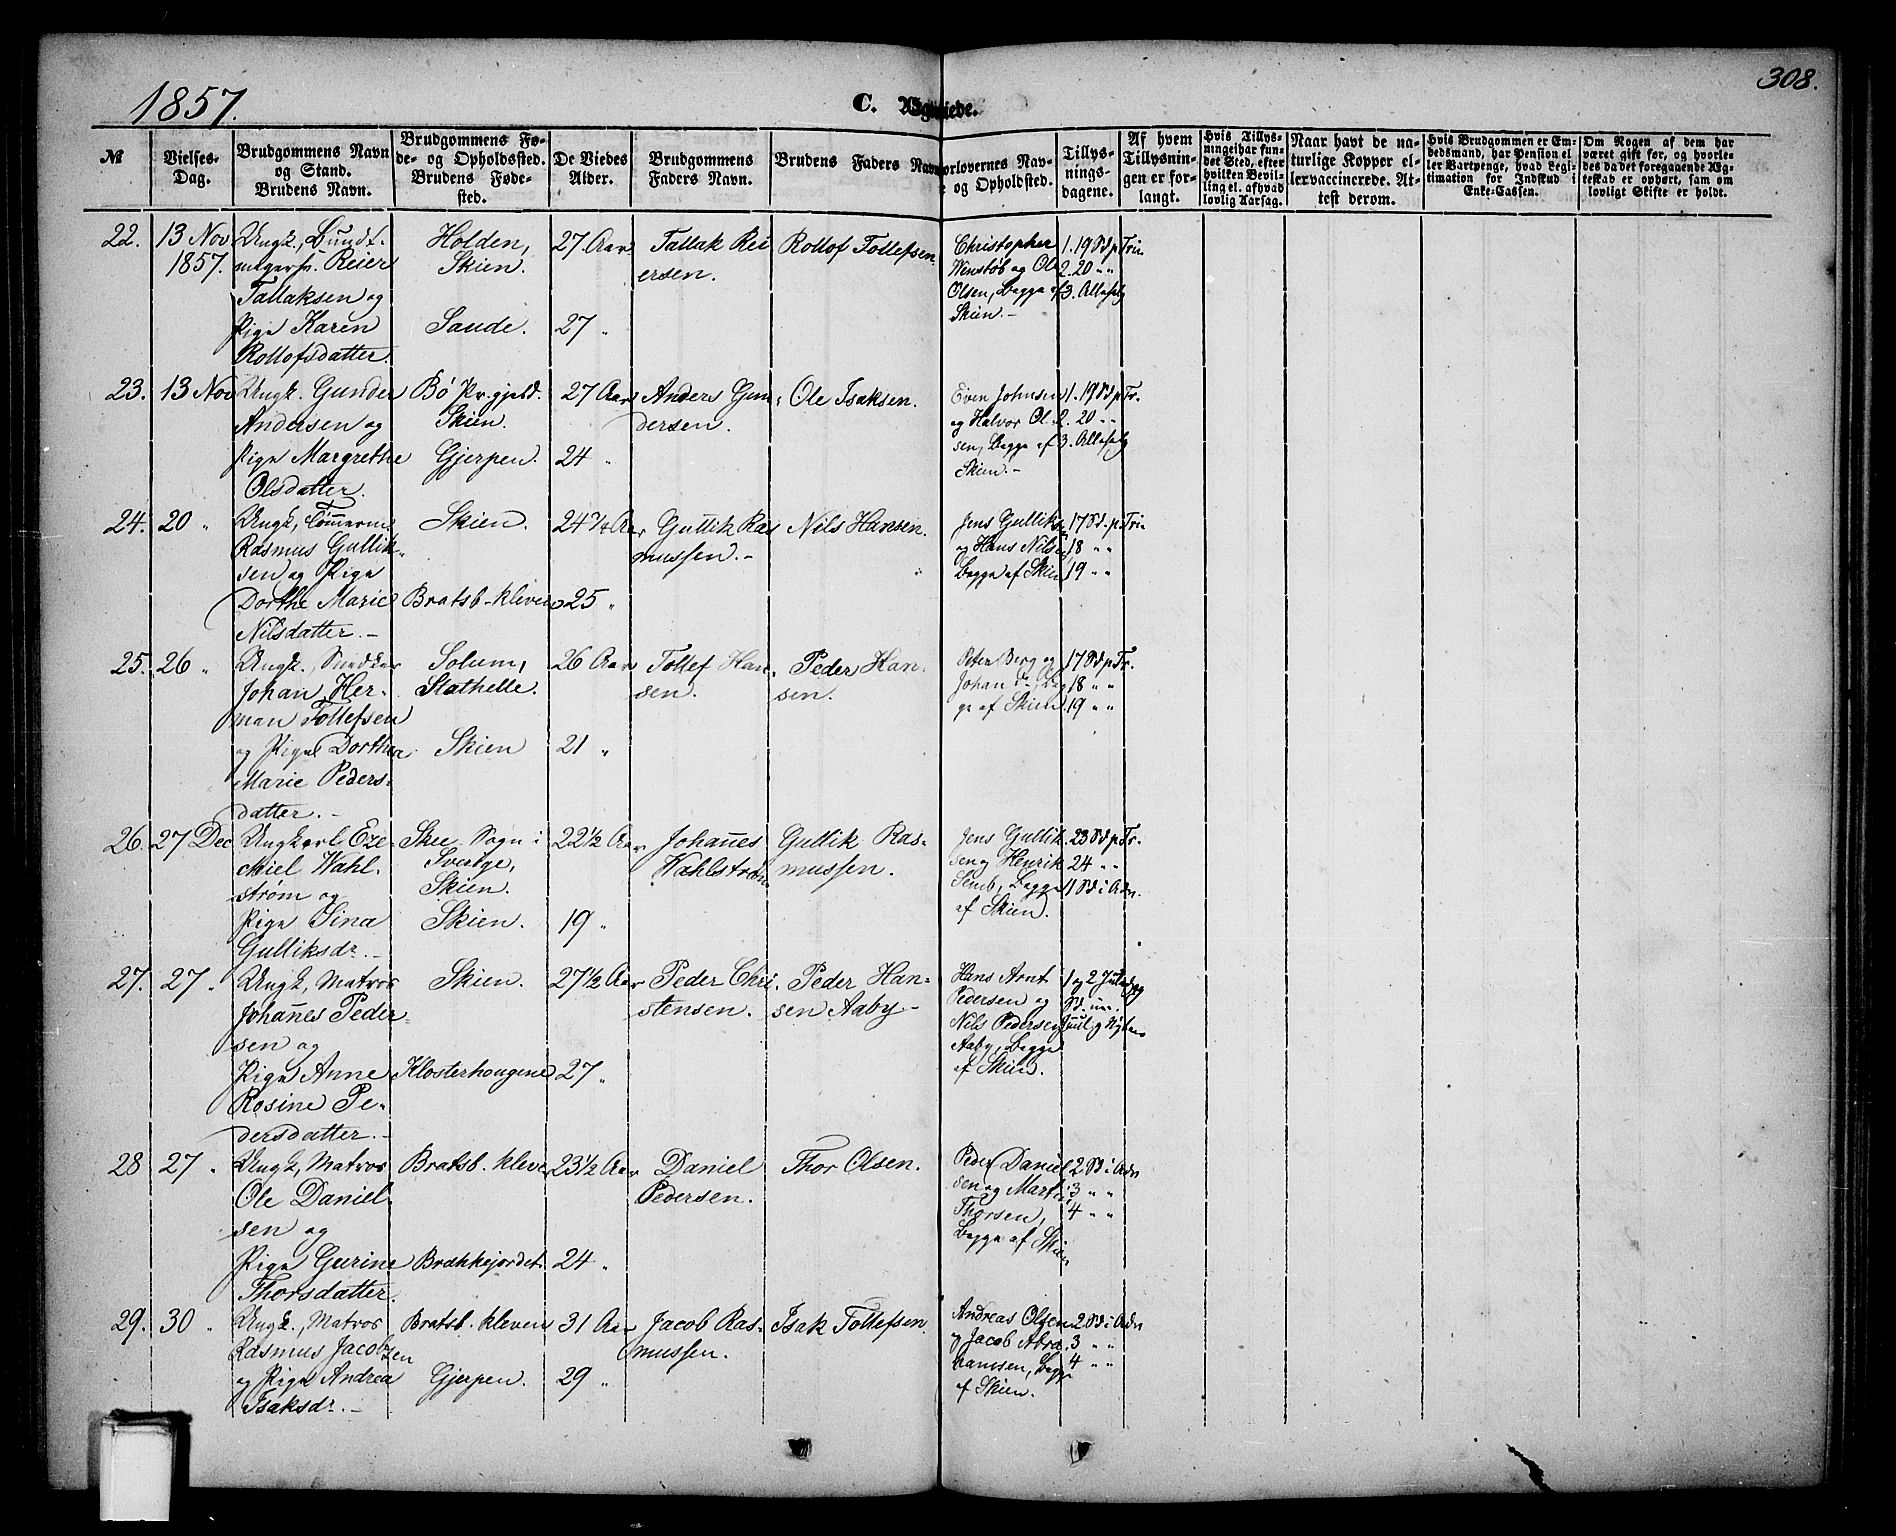 308.
1857.
C. Ægteviede.
№
Vielses-
Dag.
Brudgommens Navn
og Stand.
Brudens Navn.
Brudgommens Fø-
de- og Opholdssted.
Brudens Føde-
sted.
De Viedes
Alder.
Brudgommens
Faders Navn.
Brudens Faders Navn
orlovernes Nav-
e og Opholdsted.
Tillys-
nings-
dagene.
Af hvem
Tillysnin-
gen er for-
langt.
Hvis Tillys-
ningei har fun-
det Sted, efter
hvilken Bevil-
ling el. afhvad
lovlig Aarsag.
Naar havt de na-
turlige Kopper el-
ler vaccinerede. At-
test derom.
Hvis Brudgommen er Em-
bedsmand, har Pension el
ler Vartpenge, hvad Legi-
timation for Indskud i
Enke-Cassen.
Om Nogen af dem har
været gift før, og hvorle-
des da det foregaaende Æg-
teskab er ophørt, sam om
lovligt Skifte er holdt.
22.
13 Nov
1857.
Ungk., Bundt-
magersv. Reier
Tallaksen og
Pige Karen
Rollofsdatter.
Holden,
Skien.
Saude.
27 Aar
27 "
Tallak Rei
ersen.
Rollof Tollefsen.
Christopher
Wenstøb og Ole
Olsen, begge af
Skien.-
1. 19 Sd p Tri-
2. 20 " "
3. Allehelg
23.
13 Nov
Ungk. Gunder
Andersen og
Pige Margrethe
Olsdatter.
Bø Pr.gjeld.
Skien.
Gjerpen.
27 Aar
24 "
Anders Gun-
dersen.
Ole Isaksen.
Even Johnsen
og Halvor Ol-
sen, begge af
Skien.-
1. 19 Sd p Tr.
2. 20 " "
3. Allehelg
24.
20 "
Ungk, Tømerm.
Rasmus Gullik-
sen og Pige
Dorthe Marie
Nilsdatter.-
Skien.
Bratsb-kleven
24 3/4 Aar
25 "
Gullik Ras
mussen.-
Nils Hansen.
Jens Gulliks
og Hans Nilsen
begge af Skien
17 Sd p Tri-
18 " "
19 " "
25.
26 "
Ungk., Snedker
Johan Her-
man Tollefsen
og Pige Dorthea
Marie Peders-
datter.-
Solum,
Stathelle.
Skien
26 Aar
21 "
Tollef Han-
sen.
Peder Han-
sen.
Peter Berg og
Johan do, beg
ge af Skien.
17 Sd p Tr.
18 " "
19 " "
26.
27 Dec
Ungkarl Eze-
kiel Wahl-
strøm og
Pige Sina
Gulliksdr.-
Skee Sogn i
Sverige,
Skien.
Skien.
22 1/2 Aar
19 "
Johañes
Wahlstrøm
Gullik Ras-
mussen.
Jens Gullik-
sen og Henrik
Semb, begge
af Skien.
23 Sd p Tr.
24 " "
1 Sd i Adv.
27.
27 "
Ungk, Matros
Johañes Peder-
sen og
Pige Anne
Rosine Pe-
dersdatter.-
Skien.
Klosterhougene
27 1/2 Aar
27 "
Peder Chri-
stensen.
Peder Han-
sen Aaby-
Hans Arnt
Pedersen og
Nils Pedersen
Aaby, begge
af Skien.
1 og 2 Juledag
Sd. m.
Juul og Nytaar
28
27 "
Ungk, Matros
Ole Daniel-
sen og
Pige Gurine
Thorsdatter.
Bratsb.-kleven
Brækkejordet.
23 1/2 Aar
24 "
Daniel
Pedersen.
Thor Olsen.
Peder Daniel
sen og Martin
Thorsen,
begge af Skien
2 Sd i Adv
3 " "
4 " "
29.
30 "
Ungk., Matros
Rasmus Jacobsen
og Pige Andrea
Isaksdr.-
Bratsb. kleven
Gjerpen.
31 Aar
29 "
Jacob Ras-
mussen.
Isak Tollefsen.
Andreas Olsen
og Jacob Abra-
hamsen, begge
af Skien.
2 Sd i Adv
3 " "
4 " "